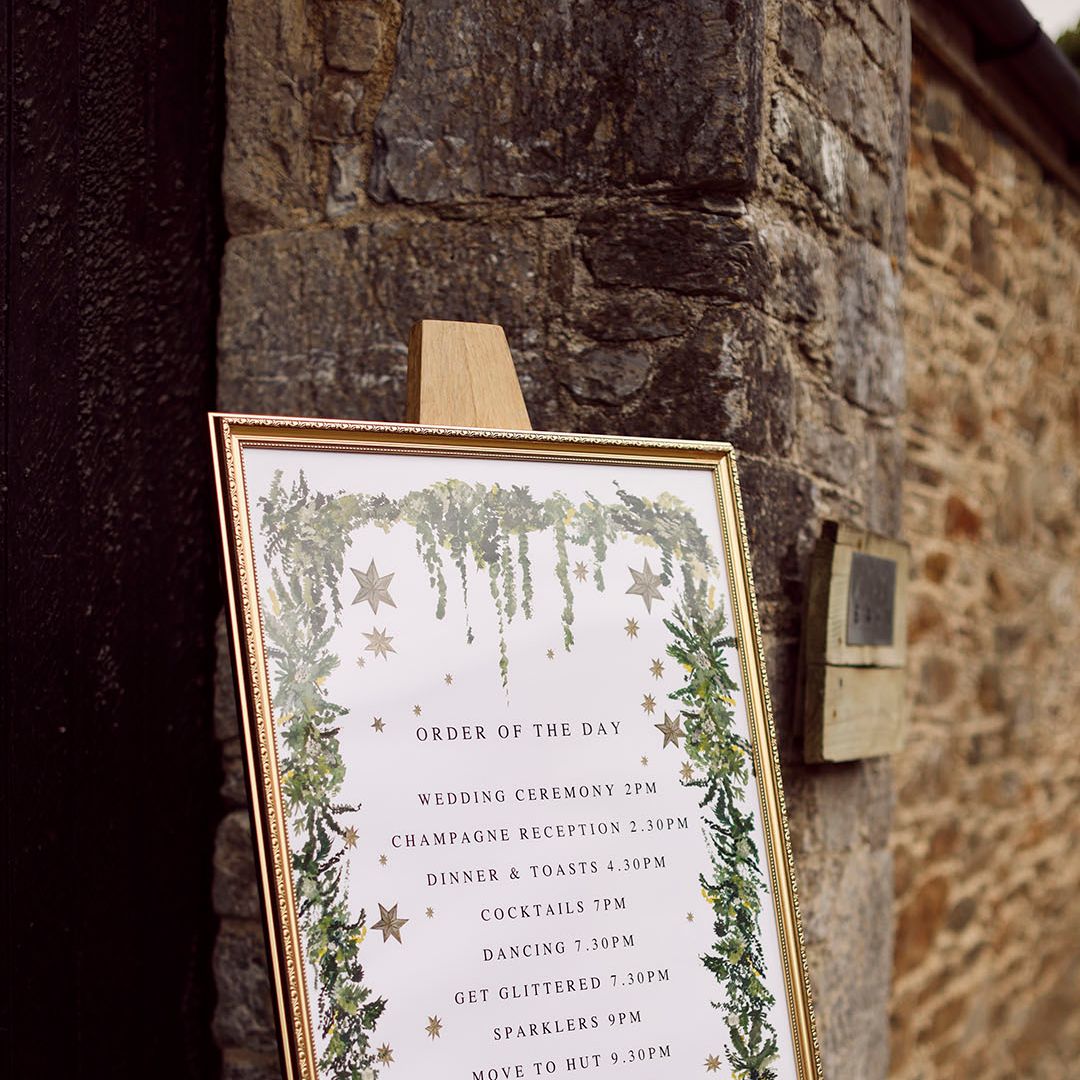 ORDER OF THE DAY
WEDDING CEREMONY 2PM
CHAMPAGNE RECEPTION 2.30PM
DINNER & TOASTS 4.30PM
COCKTAILS 7PM
DANCING 7.30PM
GET GLITTERED 7.30PM
SPARKLERS 9PM
MOVE TO HUT 9.30PM